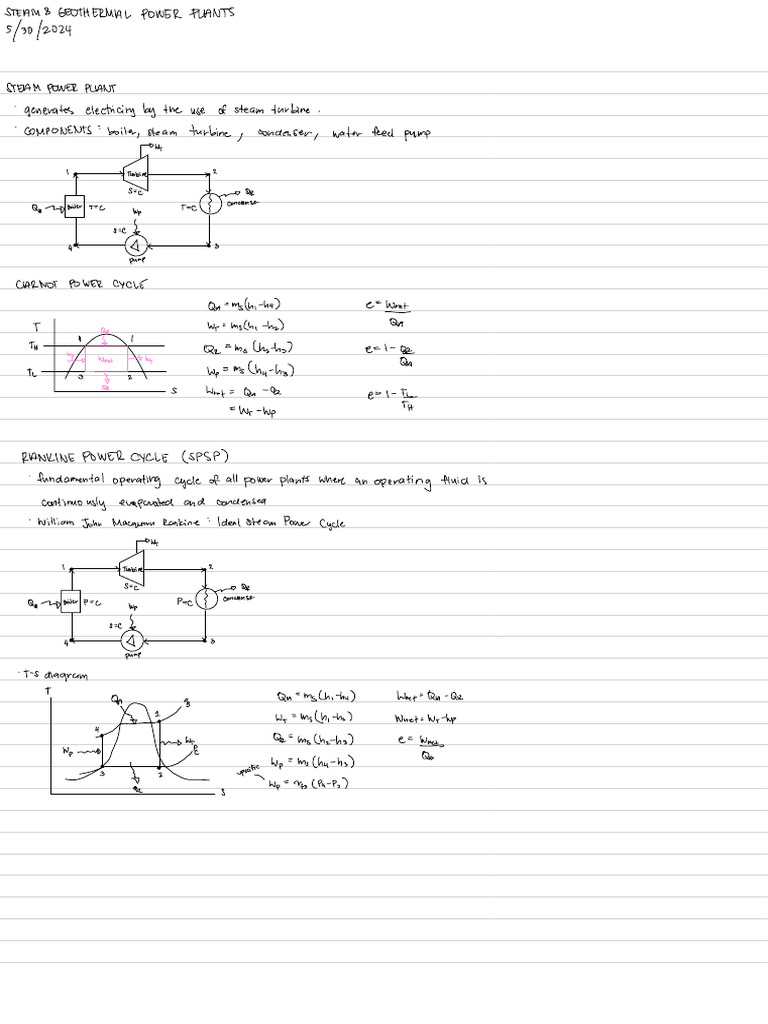 STEAM & GEOTHERMAL POWER PLANTS
5/30/2024
STEAM POWER PLANT
· generates electricing by the use of steam turbine.
· COMPONENTS: boiler, steam turbine, condenser, water feed pump
WT
1
Turbine
2
S=C
QA
Boiler
T=C
Wp
T=C
QR
condense
S=C
4
3
pump
CARNOT POWER CYCLE
T
TH
TL
4
1
QA
Wp
Wnet
WT
3
2
QR
S
QA = ms(h1-h4)
WT = ms(h1-h2)
QR = ms(h2-h3)
Wp = ms(h4-h3)
Wnet = QA - QR
= WT - Wp
e = Wnet/QA
e = 1 - QR/QA
e = 1 - TL/TH
RANKINE POWER CYCLE (SPSP)
· fundamental operating cycle of all power plants where an operating fluid is
continuously evaporated and condensed
· William John Macquorn Rankine: Ideal Steam Power Cycle
WT
1
Turbine
2
S=C
QA
Boiler
P=C
Wp
P=C
QR
condense
S=C
4
3
pump
· T-S diagram
T
QA
1
4
Wp
WT
3
2
QR
S
QA = ms(h1-h4)
WT = ms(h1-h2)
QR = ms(h2-h3)
Wp = ms(h4-h3)
specific
Wp = vf3(P4-P3)
Wnet = QA - QR
Wnet = WT - Wp
e = Wnet/QA